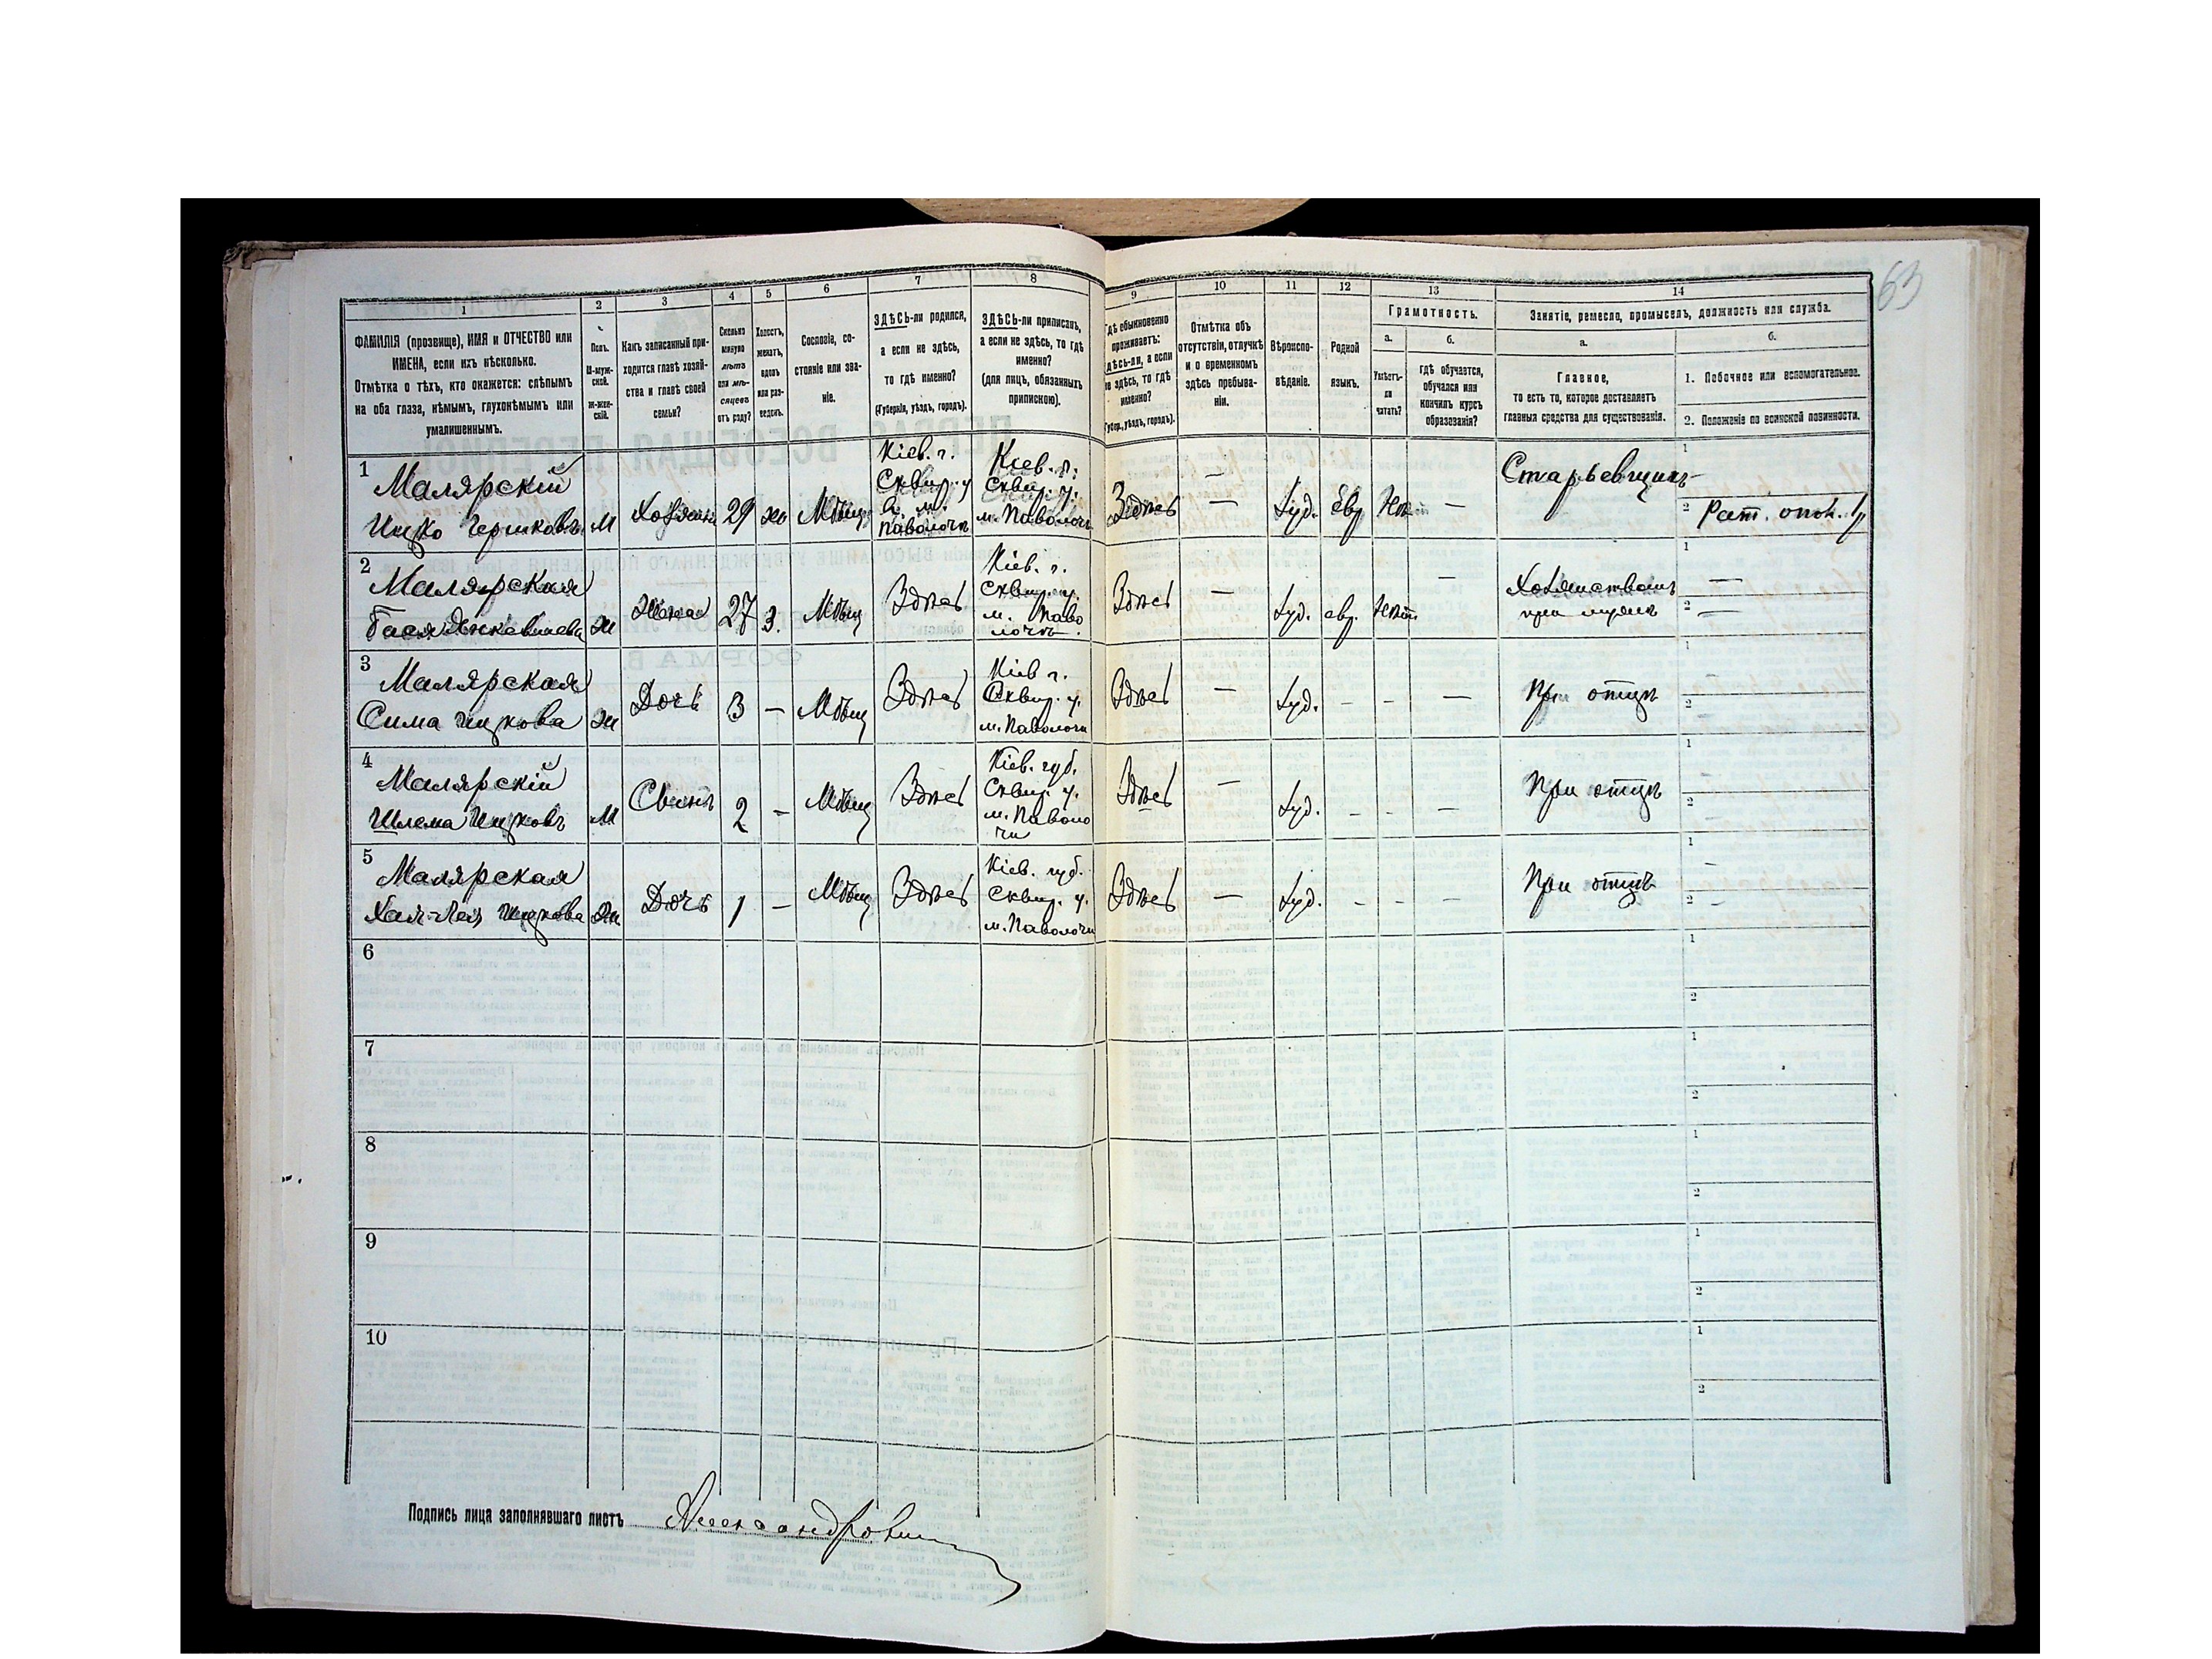 63
1
2
3
4
5
6
7
8
9
10
11
12
13
14
ФАМИЛІЯ (прозвище), ИМЯ и ОТЧЕСТВО или
ИМЕНА, если ихъ нѣсколько.
Отмѣтка о тѣхъ, кто окажется: слѣпымъ
на оба глаза, нѣмымъ, глухонѣмымъ или
умалишеннымъ.
Полъ.
М-муж-
ской.
Ж-жен-
скій.
Какъ записанный при-
ходится главѣ хозяй-
ства и главѣ своей
семьи?
Сколько
минуло
лѣтъ
или мѣ-
сяцевъ
отъ роду?
Холостъ,
женатъ,
вдовъ
или раз-
веденъ.
Сословіе, со-
стояніе или зва-
ніе.
ЗДѢСЬ-ли родился,
а если не здѣсь,
то гдѣ именно?
(Губернія, уѣздъ, городъ).
ЗДѢСЬ-ли приписанъ,
а если не здѣсь, то гдѣ
именно?
(для лицъ, обязанныхъ
припискою).
Гдѣ обыкновенно
проживаетъ:
здѣсь-ли, а если
не здѣсь, то гдѣ
именно?
(Губер., уѣздъ, городъ).
Отмѣтка объ
отсутствіи, отлучкѣ
и о временномъ
здѣсь пребыва-
ніи.
Вѣроиспо-
вѣданіе.
Родной
языкъ.
Грамотность.
а.
Умѣетъ-
ли
читать?
б.
гдѣ обучается,
обучался или
кончилъ курсъ
образованія?
Занятіе, ремесло, промыселъ, должность или служба.
а.
Главное,
то есть то, которое доставляетъ
главныя средства для существованія.
б.
1. Побочное или вспомогательное.
2. Положеніе по воинской повинности.
1
Малярскій
Ицко Гершковъ
М
Хозяинъ
29
Мѣщ.
Кіев. г.
Сквир. у
м.
Паволочь
Кіев. г.
Сквир. у.
м. Паволочь
Здѣсь
—
Іуд.
Евр
Нѣт
—
Старьевщикъ
1
2
Рат. опол.
2
Малярская
Бася
ж
Жена
27
З.
Мѣщ
Здѣсь
Кіев. г.
Сквир. у.
м. Паво
лочь
Здѣсь
—
Іуд.
евр.
Нѣт.
—
Хозяйствомъ
при мужѣ
1 —
2 —
3
Малярская
Сима Ицкова
ж
Дочь
3
—
Мѣщ
Здѣсь
Кіев г.
Сквир. у.
м. Паволочи
Здѣсь
—
Іуд.
-
-
—
При отцѣ
1
2
4
Малярскій
Шлема Ицковъ
М
Сынъ
2
-
Мѣщ
Здѣсь
Кіев. губ.
Сквир. у.
м. Паволо
чи
Здѣсь
—
Іуд.
-
-
—
При отцѣ
1
2
5
Малярская
Хая-Лея Ицкова
ж
Дочь
1
-
Мѣщ
Здѣсь
Кіев. губ.
Сквир. у.
м. Паволочи
Здѣсь
—
Іуд.
-
-
—
При отцѣ
1 —
2 —
6
1
2
7
1
2
8
1
2
9
1
2
10
1
2
Подпись лица заполнявшаго листъ